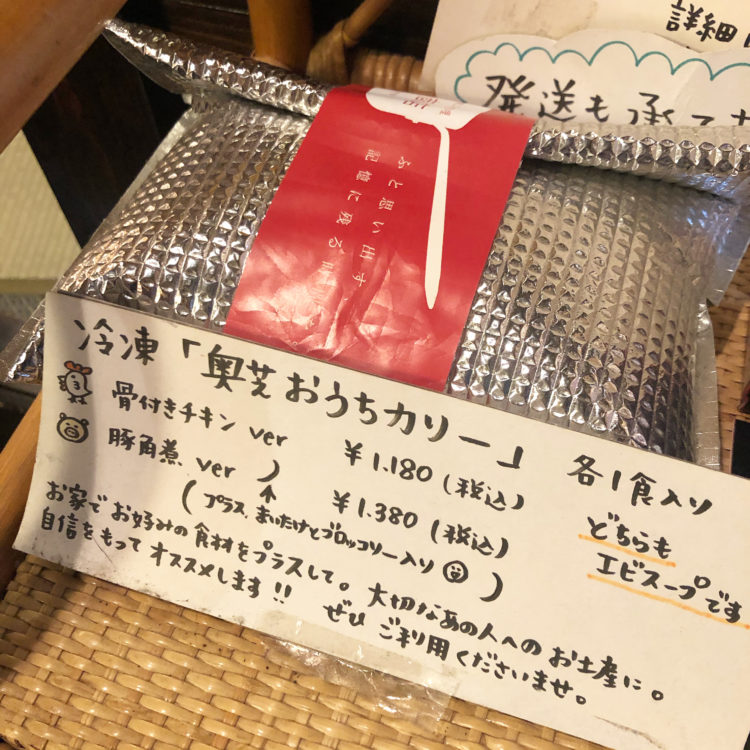 詳細
発送も承て
ふと思い出す
記憶に残る
冷凍「奥芝おうちカリー」
各1食入り
骨付きチキン ver ¥1.180(税込)
豚角煮 ver ¥1.380(税込)
(プラス、まいたけとブロッコリー入り)
どちらも
エビスープです
お家でお好みの食材をプラスして。大切なあの人へのお土産に。
自信をもってオススメします!! ぜひご利用くださいませ。